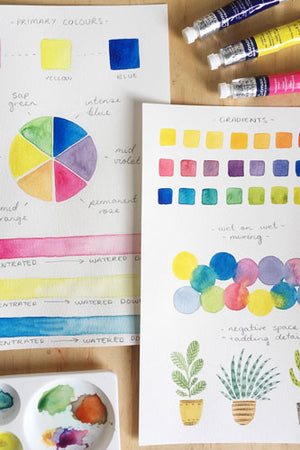 - PRIMARY COLOURS -
YELLOW
BLUE
sap
green
intense
blue
mid
violet
mid
orange
permanent
rose
WATERED DOWN
WATERED DOWN
WATERED DOW
- GRADIENTS -
- wet on wet -
- mixing -
- negative space
- adding detai